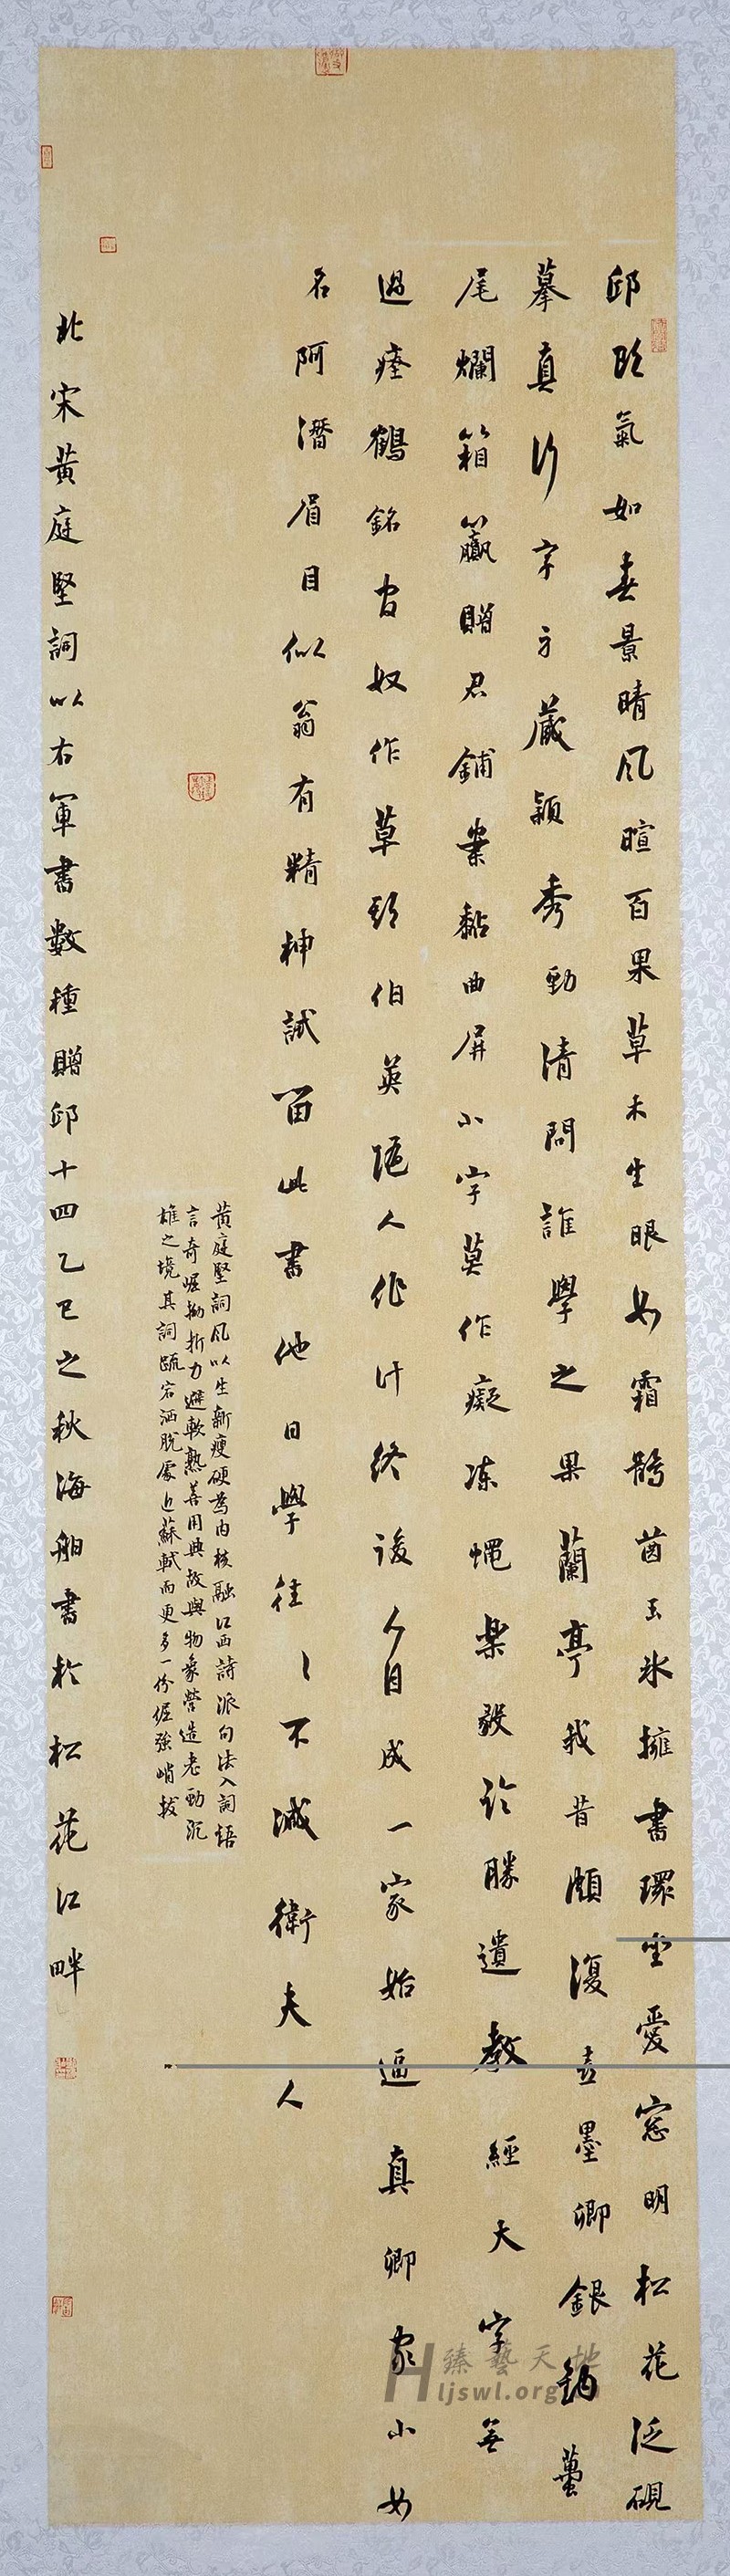 邱郎氣如春景晴風暄百果草木生眼如霜鶻齒玉冰擁書環坐愛窓明松花泛硯
摹真行字方藏穎秀勁清問誰學之果蘭亭我昔頗復喜墨卿銀鉤蠆
尾爛箱籯贈君鋪案黏曲屏小字莫作癡凍蠅樂毅論勝遺教經大字無
過瘞鶴銘官奴作草欺伯英隨人作計終後人自成一家始逼真卿家小女
名阿潛眉目似翁有精神試留此書他日學往〻不減衛夫人
黃庭堅詞風以生新瘦硬為內核融江西詩派句法入詞語
言奇崛拗折力避軟熟善用典故與物象營造老勁沉
雄之境其詞宕洒脫處近蘇軾而更多一份倔強峭拔
北宋黃庭堅詞以右軍書數種贈邱十四乙巳之秋海舶書於松花江畔
臻藝天地
Hljswl.org.cn